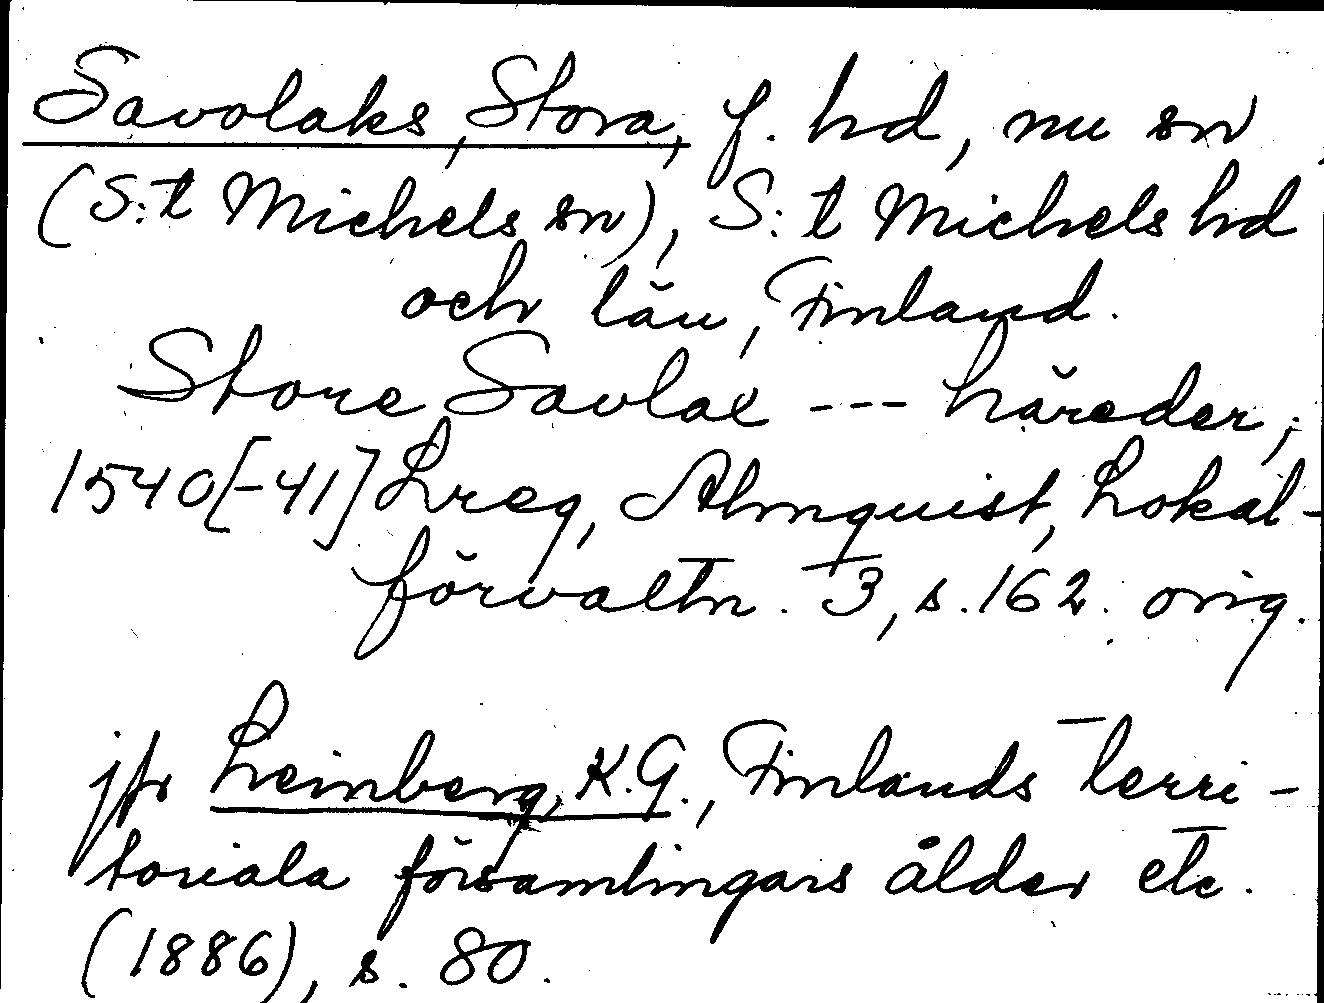 Savolaks, Stora, f. hd, nu sn
(S:t Michels sn), S:t Michels hd
och län, Finland.
Store Savlax --- häreder,
1540[-41] Lreg, Almquist, Lokal-
förvaltn. 3, s. 162. orig.
jfr Leinberg, K.G., Finlands terri-
toriala församlingars ålder etc.
(1886), s. 80.